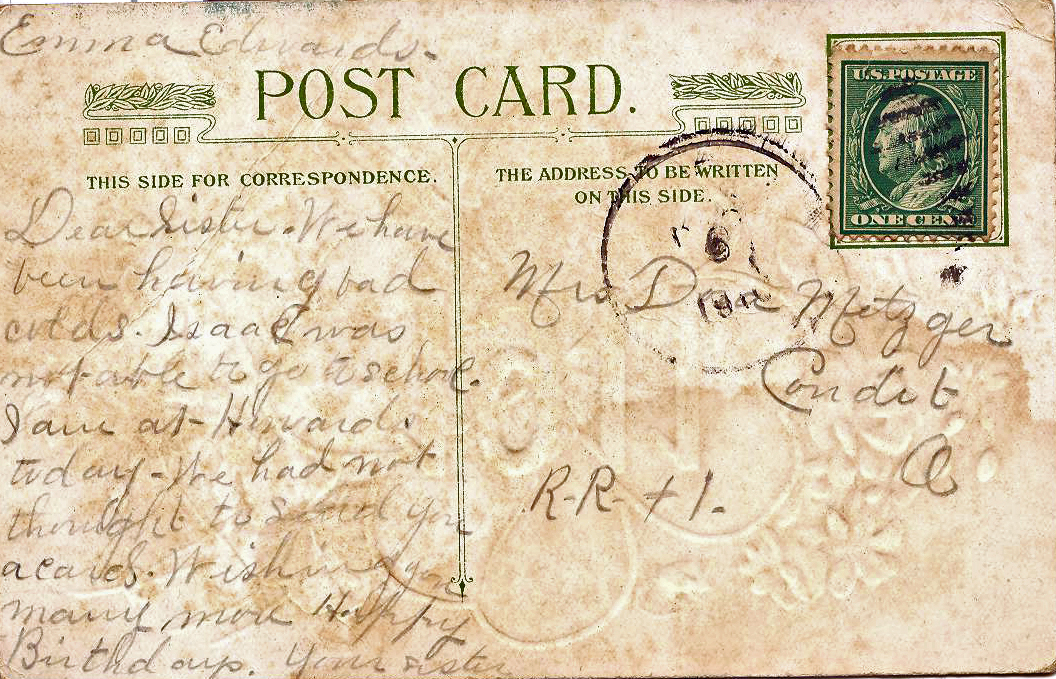 Emma Edwards.
POST CARD.
THIS SIDE FOR CORRESPONDENCE.
THE ADDRESS TO BE WRITTEN
ON THIS SIDE.
U.S. POSTAGE
ONE CENT
6
Dear Sister. We have
been having bad
colds. Isaac was
not able to go to school.
I am at Howards.
today - We had not
thought to send you
a card. Wishing you
many more Happy
Birthdays. Your sister
Mrs Metzger
Condit
O
R-R- + 1.